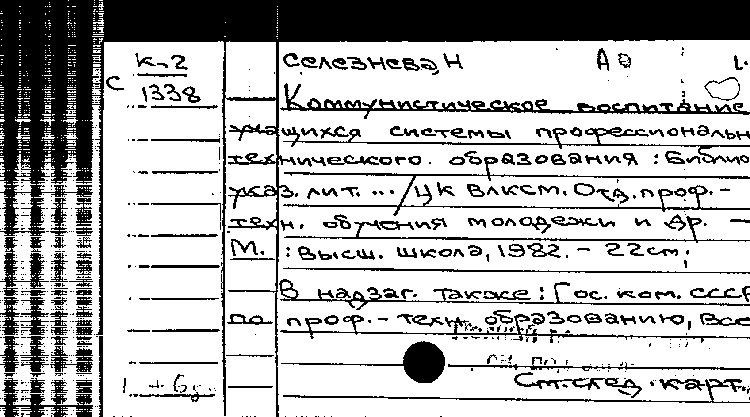 К-2 Селезнева Н
С 1338
Коммунистическое воспитание
учащихся системы профессиональн
технического образования : Библио
указ. лит. ... / ЦК ВЛКСМ. Отд. проф. -
техн. обучения молодежи и др. -
М. : Высш. школа, 1982. - 22 см;
В надзаг. также: Гос. ком. СССР
по проф. - техн. образованию, Все
См. след. карт.